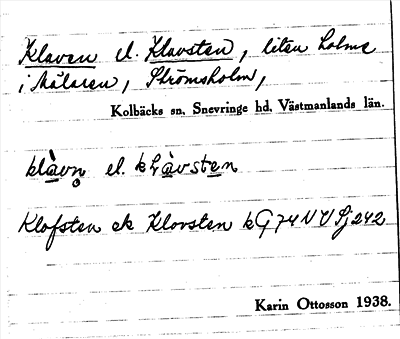 Klaven el. Klavsten, liten holme
i Mälaren, Strömsholm,
Kolbäcks sn, Snevringe hd, Västmanlands län.
klàvn̥ el. klàvsten
Klofsten ek Klovsten kG74NV Sj242
Karin Ottosson 1938.